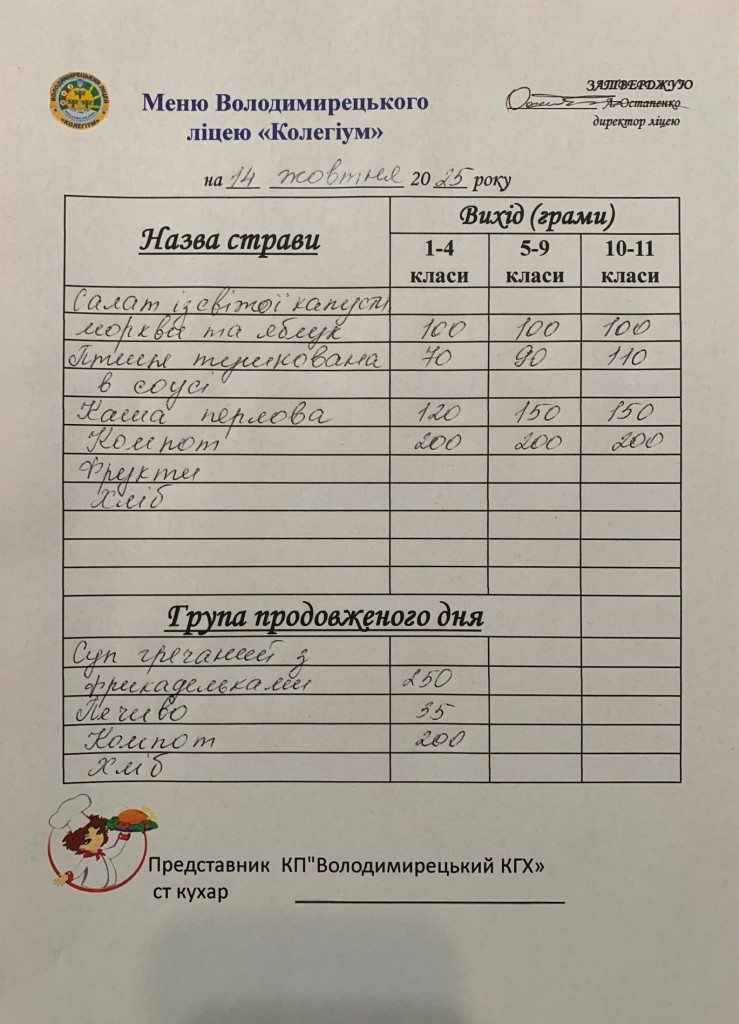 ВОЛОДИМИРЕЦЬКИЙ ЛІЦЕЙ
«КОЛЕГІУМ»
ЗАТВЕРДЖУЮ
А. Остапенко
директор ліцею
Меню Володимирецького
ліцею «Колегіум»
на 14 жовтня 2025 року
Назва страви Вихід (грами)
1-4 класи 5-9 класи 10-11 класи
Салат із свіжої капусти
моркви та яблук 100 100 100
Птиця тушкована 70 90 110
в соусі
Каша перлова 120 150 150
Компот 200 200 200
Фрукти
Хліб
Група продовженого дня
Суп гречаний з
фрикадельками 250
Печиво 35
Компот 200
Хліб
Представник КП"Володимирецький КГХ»
ст кухар